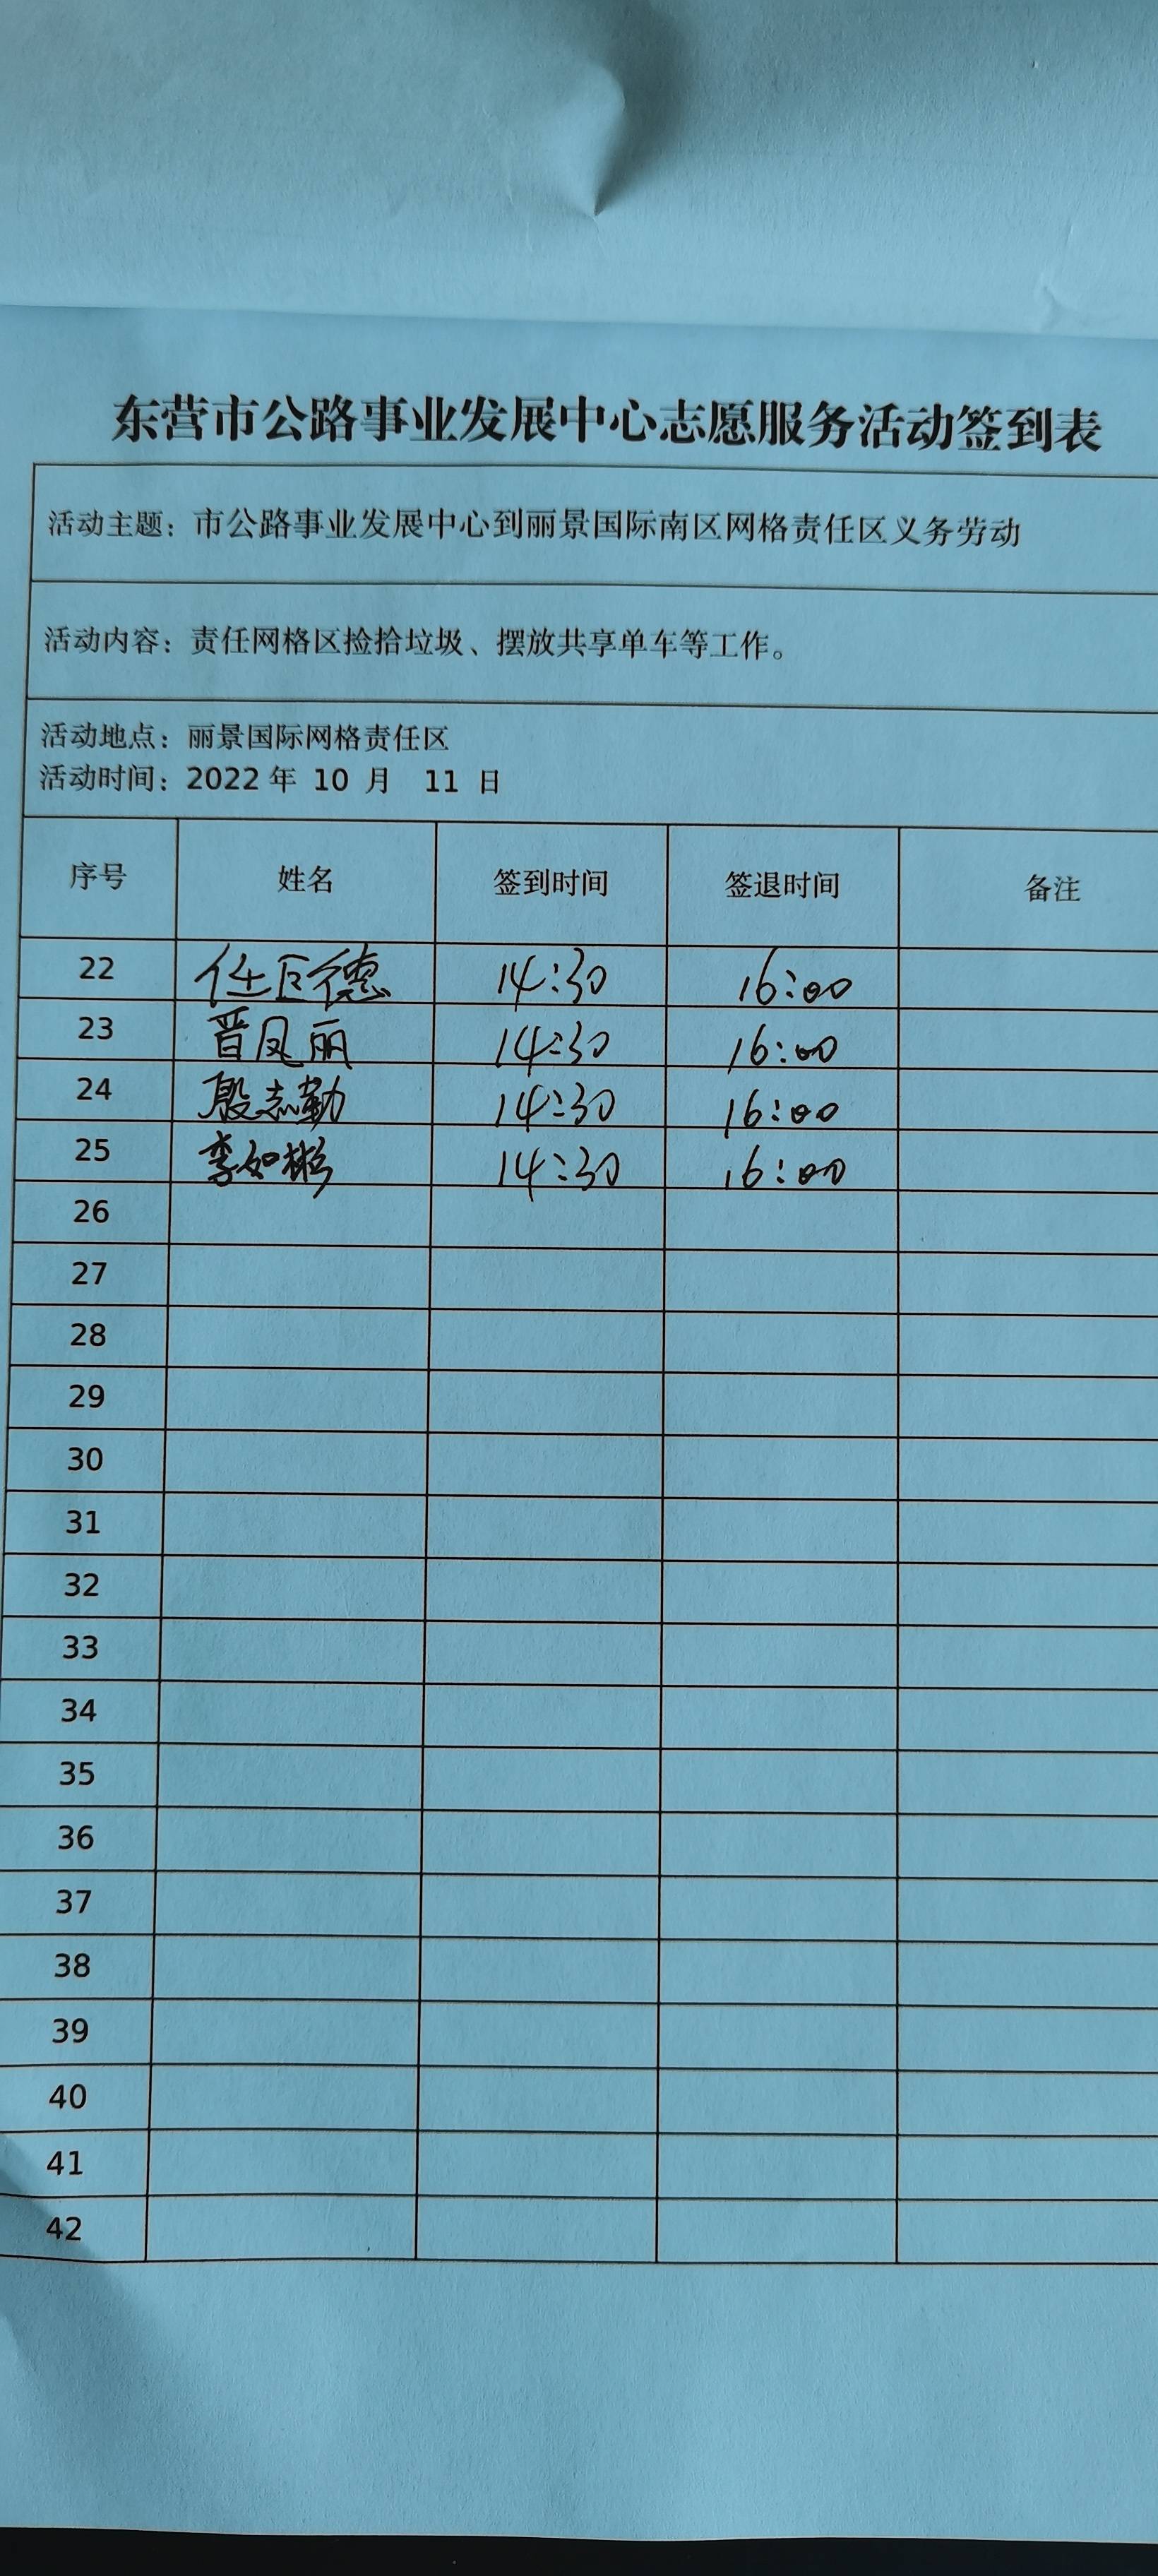 东营市公路事业发展中心志愿服务活动签到表
活动主题：市公路事业发展中心到丽景国际南区网格责任区义务劳动
活动内容：责任网格区捡拾垃圾、摆放共享单车等工作。
活动地点：丽景国际网格责任区
活动时间：2022 年 10 月 11 日
序号 姓名 签到时间 签退时间 备注
22 任巨德 14:30 16:00
23 晋凤丽 14:30 16:00
24 殷志勤 14:30 16:00
25 李如彬 14:30 16:00
26
27
28
29
30
31
32
33
34
35
36
37
38
39
40
41
42